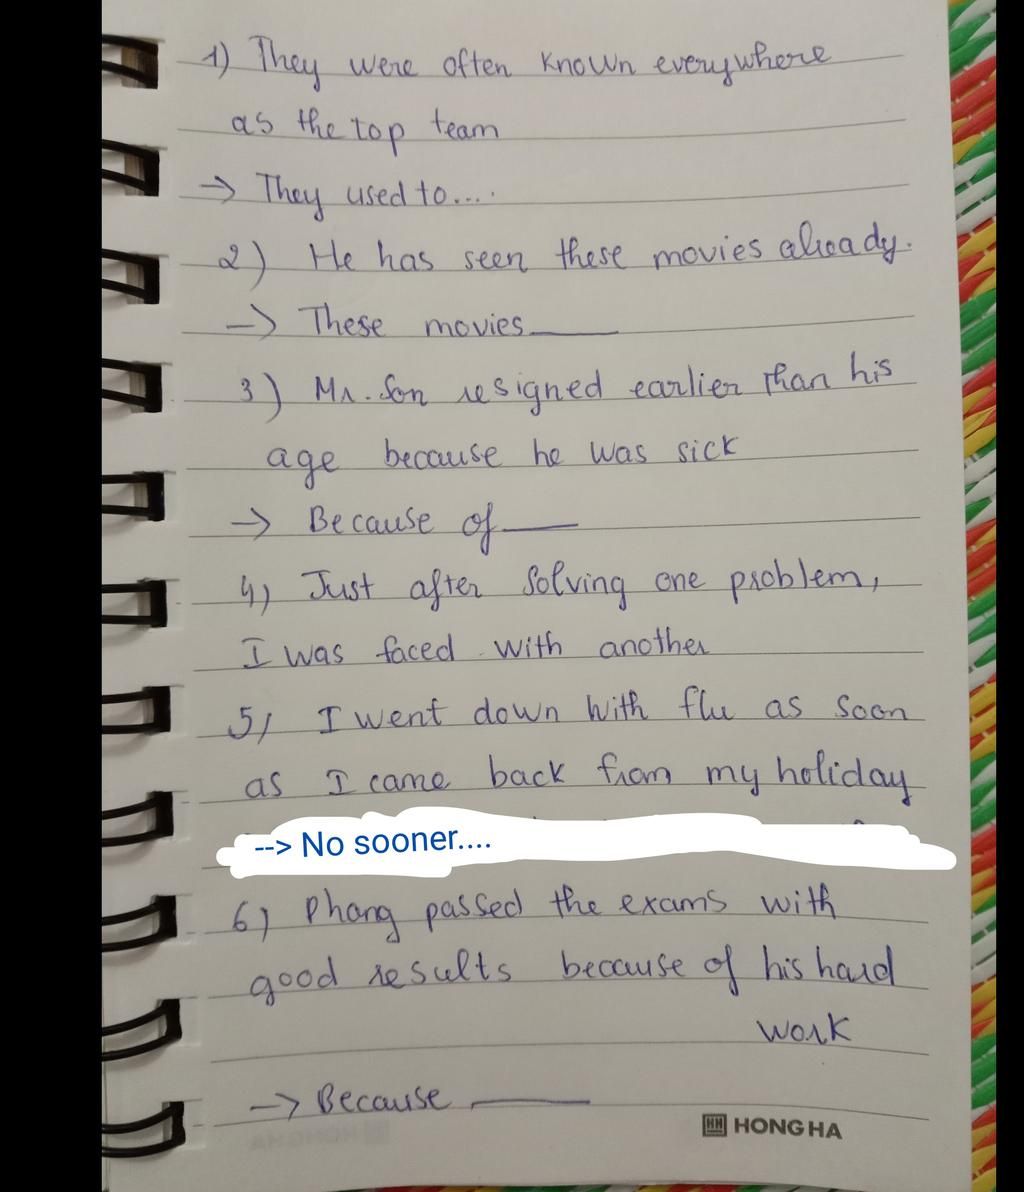 1) They were often known everywhere
as the top team
→ They used to....
2) He has seen these movies already.
→ These movies____
3) Mr. Son resigned earlier than his
age because he was sick
→ Because of____
4) Just after solving one problem,
I was faced with another
5) I went down with flu as soon
as I came back from my holiday
--> No sooner....
6) Phong passed the exams with
good results because of his hard
work
→ Because ____
HH HONG HA